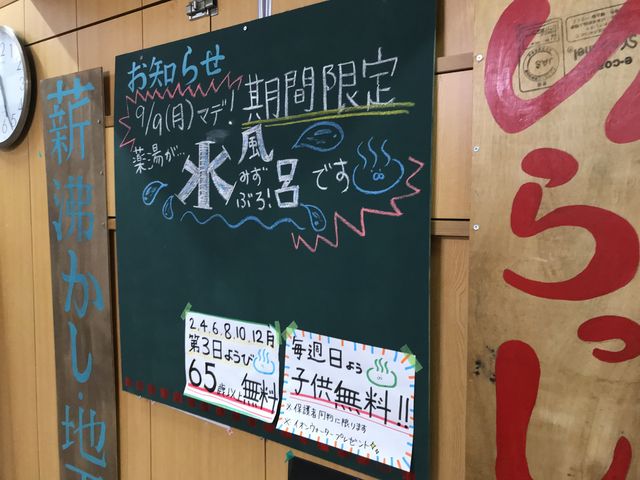 お知らせ
9/9(月)マデ!
期間限定
薬湯が…
水風呂
みずぶろ!
です
2.4.6.8.10.12月
第3日ようび
65歳以上無料
毎週日よう
子供無料!!
※保護者同伴に限ります
※イオンウォータープレゼント
薪沸かし・地下
いらっし